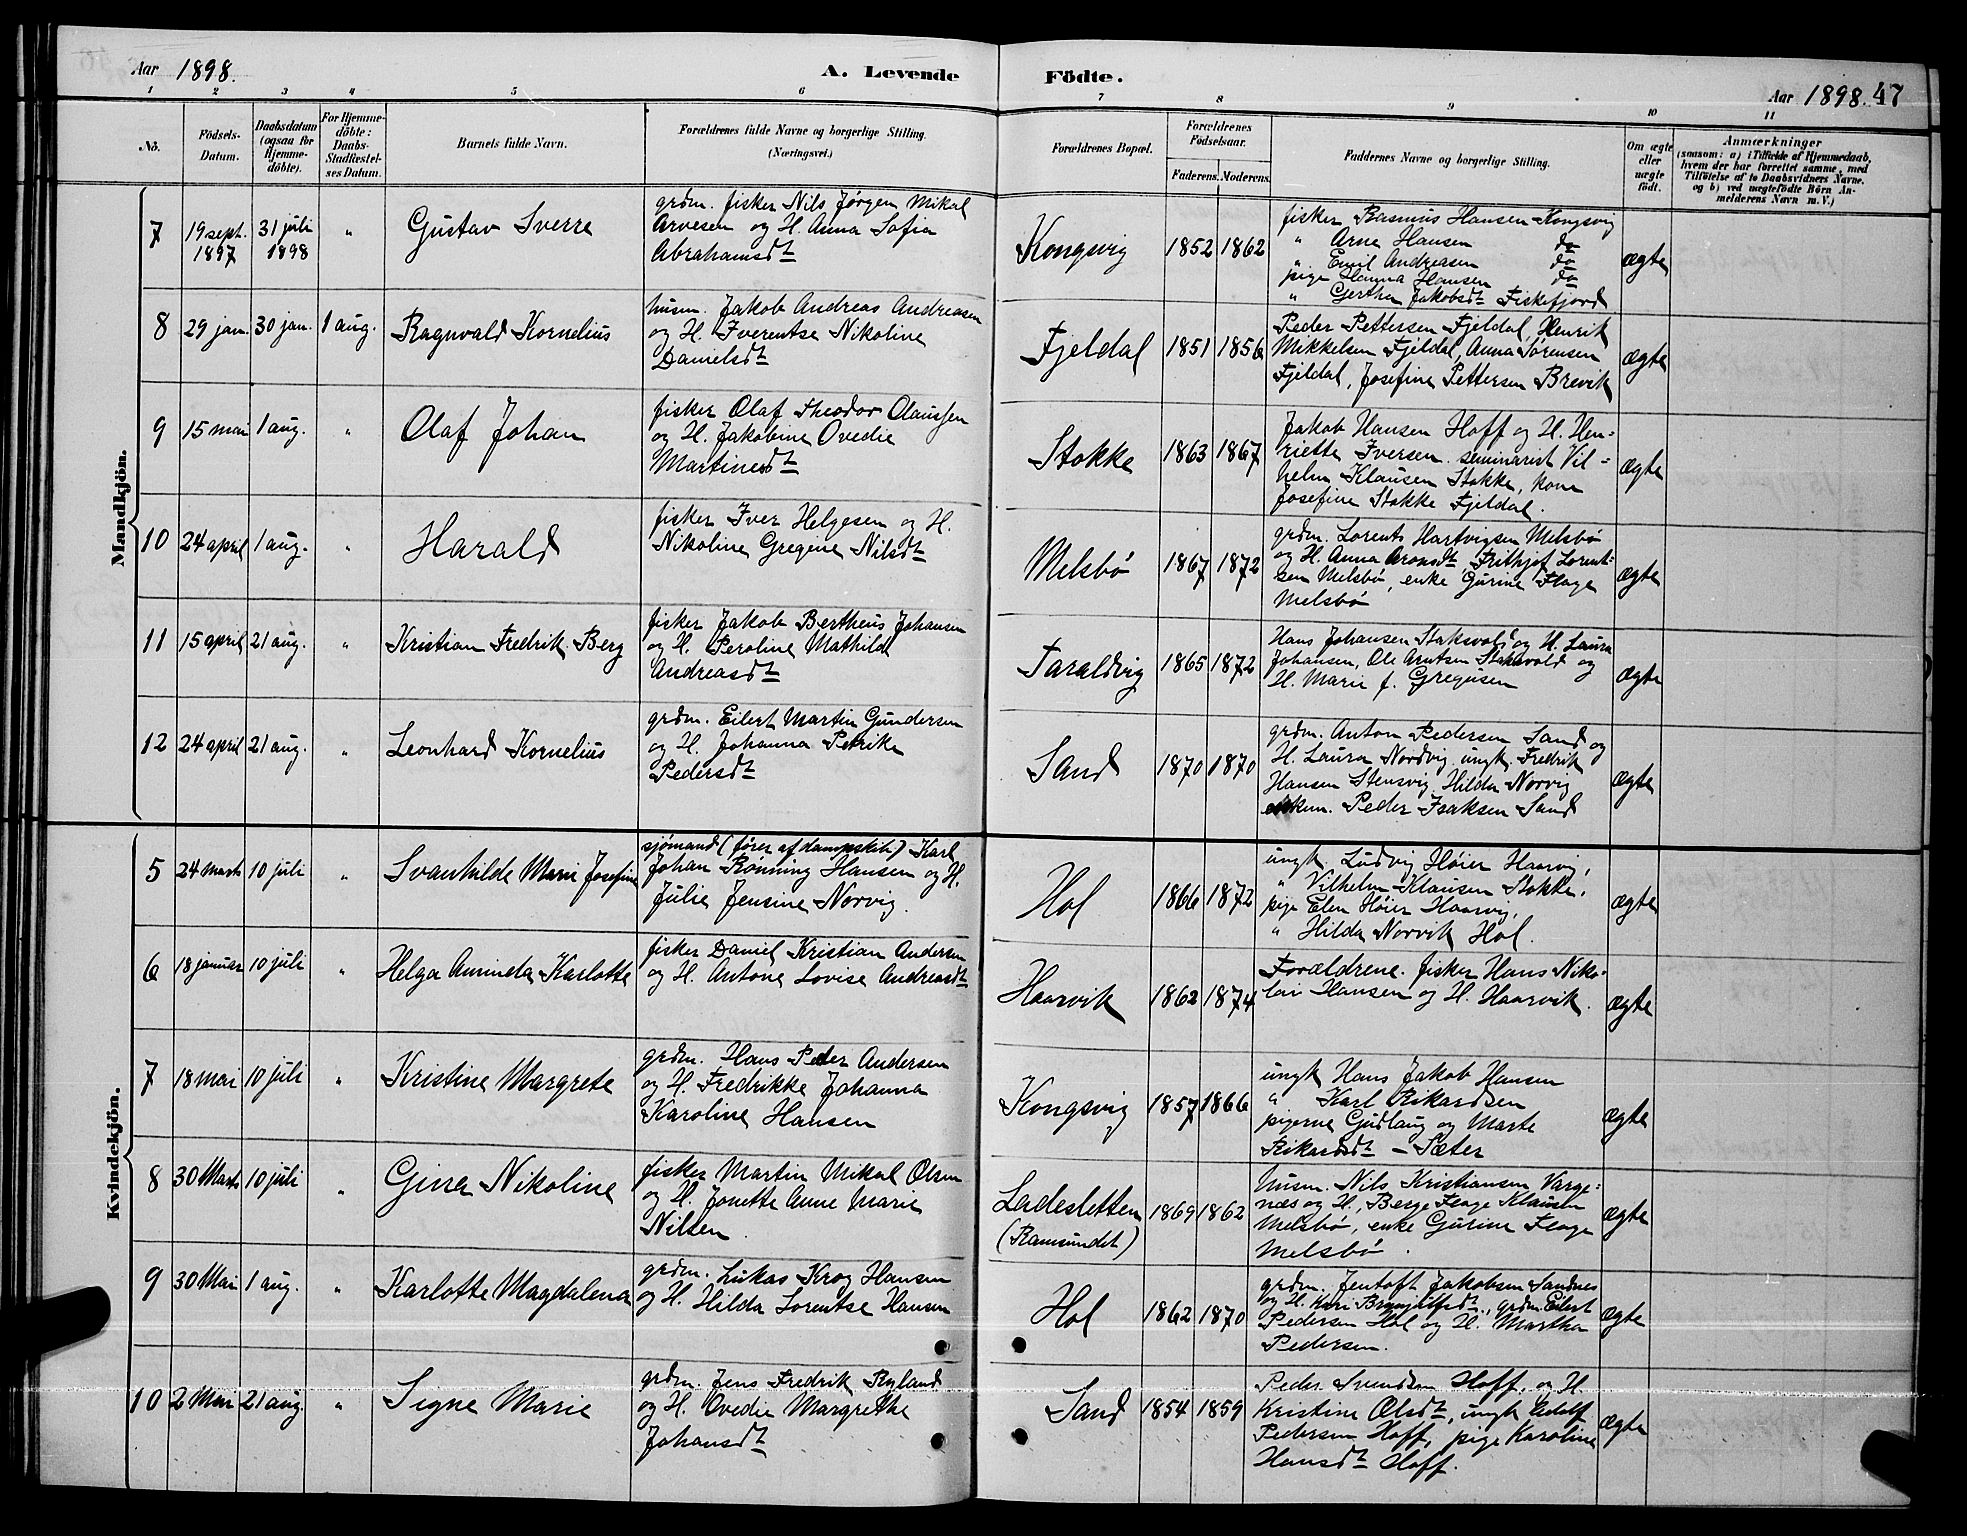 Aar 1898.
A. Levende Födte.
Aar 1898. 47
1 2 3 4 5 6 7 8 9 10 11
No.
Födsels-Datum.
Daabsdatum (ogsaa for Hjemme-döbte).
For Hjemme-döbte: Daabs-Stadfæstel-ses Datum.
Barnets fulde Navn.
Forældrenes fulde Navne og borgerlige Stilling.
(Næringsvei.)
Forældrenes Bopæl.
Forældrenes Födselsaar.
Faderens. Moderens.
Faddernes Navne og borgerlige Stilling.
Om ægte eller uægte födt.
Anmærkninger
(saasom: a) i Tilfælde af Hjemmedaab,
hvem der har forrettet samme, med
Tilföielse af to Daabsvidners Navne,
og b) ved uægtefödte Börn An-
melderens Navn m. V.)
Mandkjön.
7 19 sept. 1897 31 juli 1898 " Gustav Sverre
grdm. fisker Nils Jørgen Mikal
Arvesen og H. Anna Sofia
Abrahamsdt
Kongsvig 1852 1862
fisker Rasmus Hansen Kongsvig
" Arne Hansen do
" Emil Andreasen do
pige Hanna Hansen do
" Gerthe Jakobsdt Fiskefjord
ægte
8 29 jan. 30 jan. 1 aug. Ragnvald Kornelius
husm. Jakob Andreas Andreasen
og H. Iverentse Nikoline
Danielsdt
Fjeldal 1851 1856
Peder Pettersen Fjeldal, Henrik
Mikkelsen Fjeldal, Anna Sørensen
Fjeldal, Josefine Pettersen Brevik
ægte
9 15 mai 1 aug. " Olaf Johan
fisker Olaf Theodor Olaussen
og H. Jakobine Ovedie
Martinesdt
Stokke 1863 1867
Jakob Hansen Hoff og H. Hen-
riette Iversen. seminarist Vil-
helm Klausen Stokke, kone
Josefine Stokke Fjeldal.
ægte
10 24 april 1 aug. " Harald
fisker Iver Helgesen og H.
Nikoline Gregine Nilsdt
Melsbø 1867 1872
grdm. Lorents Hartvigsen Melsbø
og H. Anna Aronsdt, Frithjof Lorent-
sen Melsbø, enke Gurine Flage
Melsbø
ægte
11 15 april 21 aug. " Kristian Fredrik Berg
fisker Jakob Bertheus Johansen
og H. Peroline Mathilde
Andreasdt
Taraldvig 1865 1872
Hans Johansen Staksvold og H. Laura
Johansen, Ole Arntsen Staksvold og
H. Marie f. Gregusen
ægte
12 24 april 21 aug. " Leonhard Kornelius
grdm. Eilert Martin Gundersen
og H. Johanna Petrike
Pedersdt
Sand 1870 1870
grdm. Anton Pedersen Sand og
H. Laura Nordvig. ungk. Fredrik
Hansen Stensvig, Hilda Norvig
enkem. Peder Isaksen Sand
ægte
Kvindekjön.
5 24 marts 10 juli " Svanhilde Marie Josefine
sjömand (fører af dampskib) Karl
Johan Rønning Hansen og H.
Julie Jensine Norvig.
Hol 1866 1872
ungk. Ludvig Høier Haarvig,
" Vilhelm Klausen Stokke,
pige Elen Høier Haarvig,
" Hilda Norvik Hol.
ægte
6 18 januar 10 juli " Helga Aminda Karlotte
fisker Daniel Kristian Andersen
og H. Antone Lovise Andreasdt
Haarvik 1862 1874
Forældrene. fisker Hans Niko-
lai Hansen og H. Haarvik.
ægte
7 18 mai 10 juli " Kristine Margrete
grdm. Hans Peder Andersen
og H. Fredrikke Johanna
Karoline Hansen
Kongsvig 1857 1866
ungk Hans Jakob Hansen
" Karl Rikardsen
pigerne Gudlaug og Marte
Rikardsdt – Sæter
ægte
8 30 Marts 10 juli " Gina Nikoline
fisker Martin Mikal Olsen
og H. Jonette Anne Marie
Nilsen.
Ladesletten
(Ramsundet)
1869 1862
Husm. Nils Kristiansen Varge-
næs og H., Berge Flage Klausen
Melsbø, enke Gurine Flage
Melsbø.
ægte
9 30 Mai 1 aug. " Karlotte Magdalena
grdm. Lukas Krog Hansen
og H. Hilda Lorentse Hansen
Hol 1862 1870
grdm. Jentoft Jakobsen Sandnes
og H. Kari, grdm. Eilert
Pedersen Hol og H. Martha
Pedersen.
ægte
10 2 Mai 21 aug. " Signe Marie
grdm. Jens Fredrik Ryland
og H. Ovedie Margrethe
Johansdt
Sand 1854 1859
Peder Svendsen Hoff, og H.
Kristine Olsdt, ungk Adolf
Pedersen Hoff, pige Karoline
Hansdt Hoff.
ægte